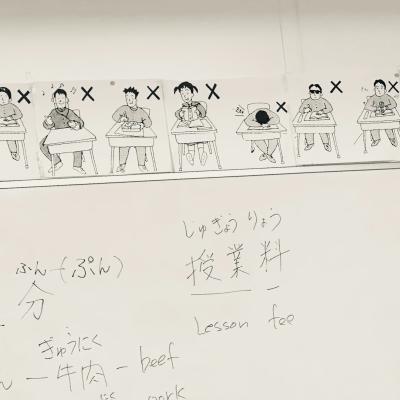 じゅぎょうりょう
授業料
Lesson fee
ふん-(ぷん)
分
ぎゅうにく
ん - 牛肉 - beef
にく pork